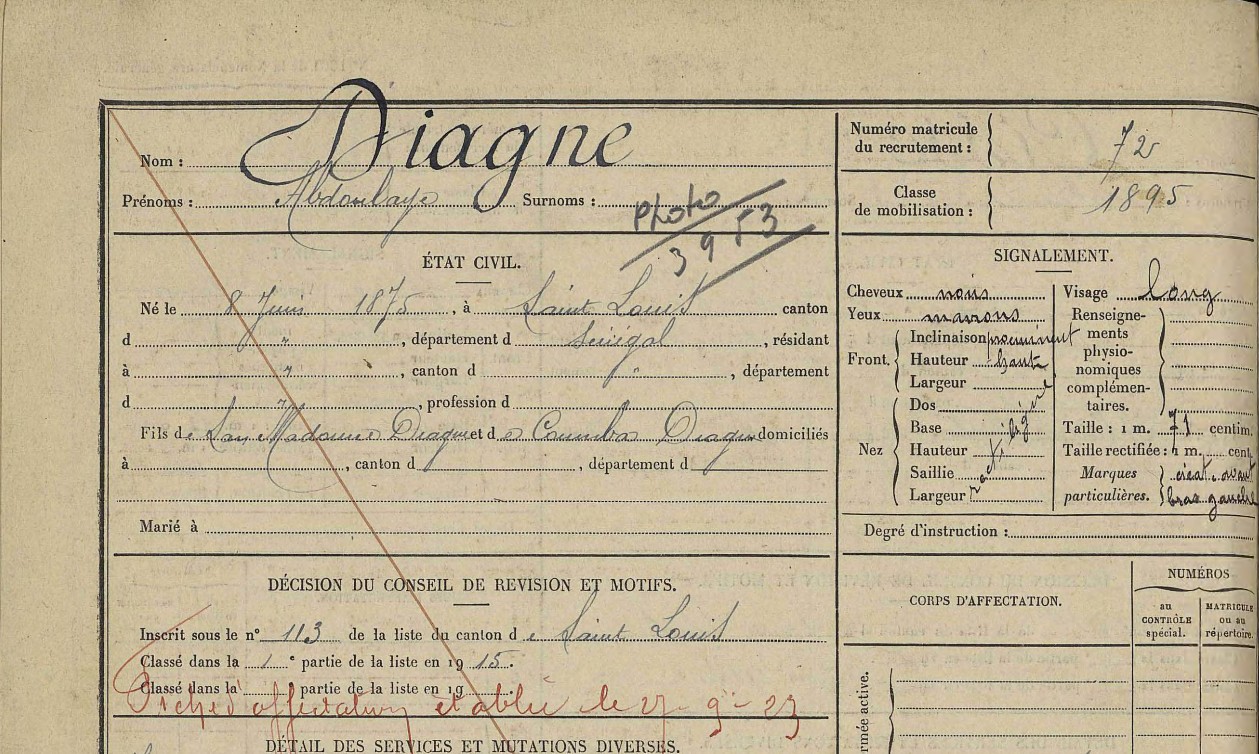 Nom : Diagne
Prénoms : Abdoulaye Surnoms :
photo
3953
Numéro matricule
du recrutement : 72
Classe
de mobilisation : 1895
ÉTAT CIVIL.
Né le 8 Juin 1875, à Saint Louis canton
d " , département d Sénégal , résidant
à " , canton d " , département
d " , profession d
Fils de Diagne et de Coumba Diagne domiciliés
à , canton d , département d
Marié à
SIGNALEMENT.
Cheveux noirs
Yeux marrons
Front.
Inclinaison proéminent
Hauteur haute
Largeur
Nez
Dos
Base
Hauteur
Saillie
Largeur
rectiligne
Visage long
Renseigne-
ments
physio-
nomiques
complémen-
taires.
Taille : 1 m. 71 centim.
Taille rectifiée : 1 m. cent.
Marques
particulières.
cicat. avant
bras gauche
Degré d'instruction :
DÉCISION DU CONSEIL DE REVISION ET MOTIFS.
Inscrit sous le n° 113 de la liste du canton de Saint Louis
Classé dans la 1e partie de la liste en 1915.
Classé dans la e partie de la liste en 19 .
Fiche d'affectation établie le 27-9-23
DÉTAIL DES SERVICES ET MUTATIONS DIVERSES.
CORPS D'AFFECTATION.
NUMÉROS
au
CONTRÔLE
spécial.
MATRICULE
ou au
répertoire.
rmée active.